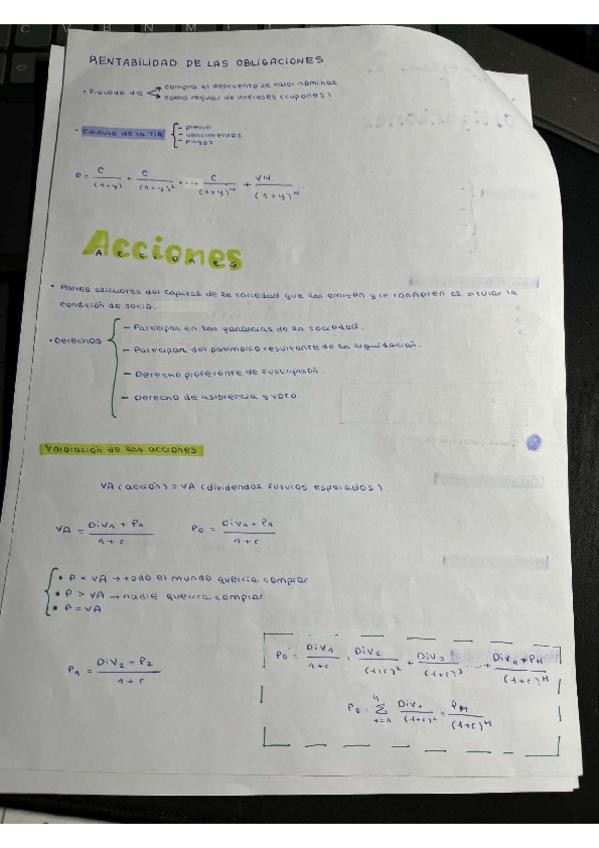 RENTABILIDAD DE LAS OBLIGACIONES
• Procede de compra al descuento de valor nominal
cobro regular de intereses (cupones).
• Cálculo de la TIR - precio
- vencimientos
- pagos
P = C/(1+y) + C/(1+y)² + ... C/(1+y)ᴺ + VN/(1+y)ᴺ
Acciones
Acciones
• Partes alícuotas del capital de la sociedad que las emiten y le confieren al titular la
condición de socio.
• Derechos
- Participar en las ganancias de la sociedad.
- Participar del patrimonio resultante de la liquidación.
- Derecho preferente de suscripción.
- Derecho de asistencia y voto.
Valoración de las acciones
VA (acción) = VA (dividendos futuros esperados).
VA = Div₁ + P₁/1+r P₀ = Div₁ + P₁/1+r
• P < VA → todo el mundo querría comprar
• P > VA → nadie querría comprar
• P = VA
P₁ = Div₂ + P₂/1+r
P₀ = Div₁/1+r + Div₂/(1+r)² + Div₃/(1+r)³ ..... + Div_H + P_H/(1+r)ᴴ
P₀ = Σ Div_t/(1+r)ᵗ + P_H/(1+r)ᴴ